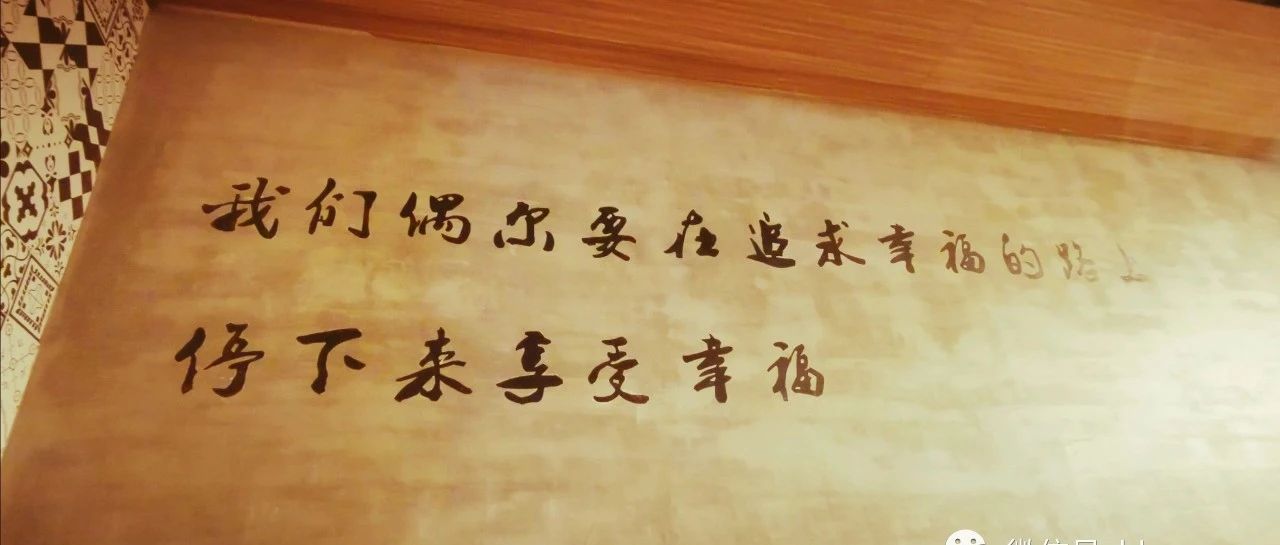 我们偶尔要在追求幸福的路上
停下来享受幸福